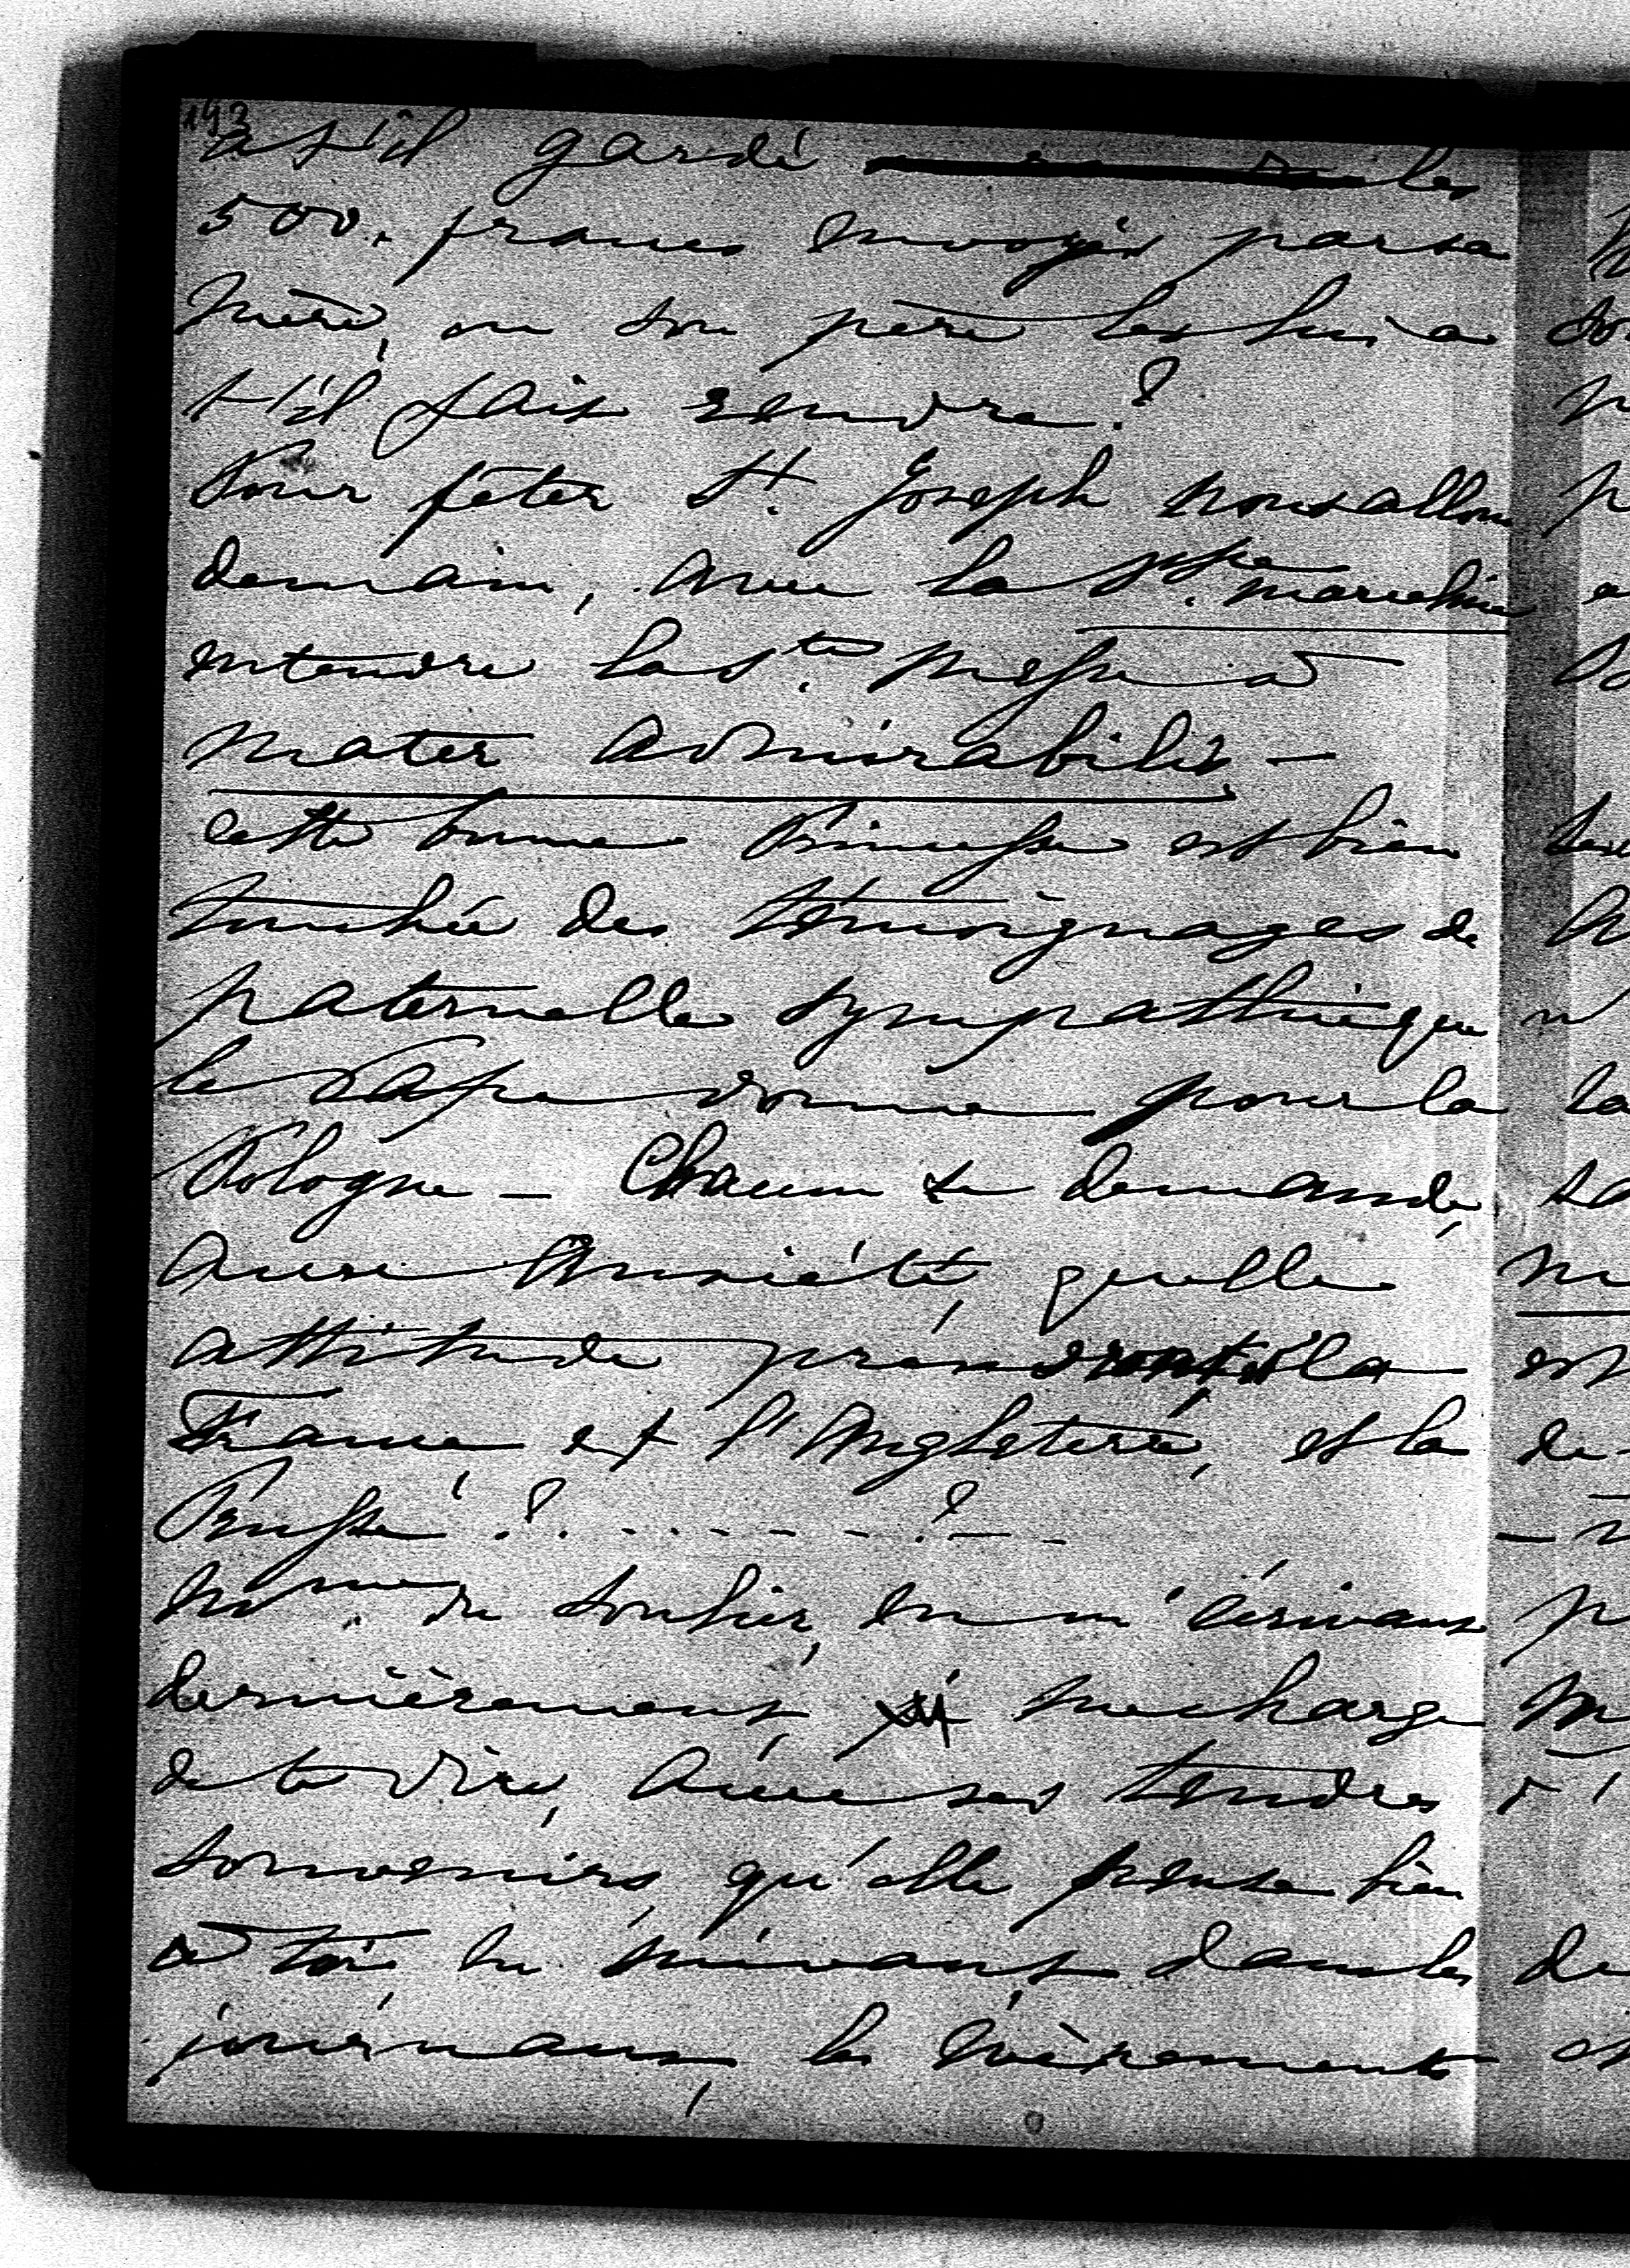 193
a t'il gardé les
500. francs envoyés par sa
mère, ou son père les lui a
t'il fait rendre?
Pour fêter St. Joseph nous allons
demain, avec la Psse. Marceline
entendre la Ste. Messe à
Mater Admirabilis –
cette bonne Princesse est bien
touchée des témoignages de
paternelle sympathie que
le Pape donne pour la
Pologne – Chacun se demande,
avec Anxiété, quelle
attitude prendront la
France, et l'Angleterre, et la
Prusse? . . . . . . ? –
Mme. du in m'écrivant
dernièrement, me charge
de te dire, avec ses tendres
souvenirs, qu'elle pense bien
à toi, en suivant, dans les
journaux, les évènements